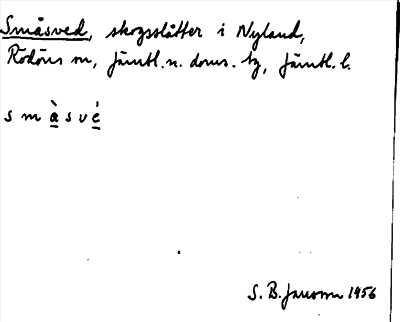 Småsved, skogsslåtter i Nyland,
Rödöns sn, Jämtl. n. doms. tg, Jämtl. l.
s m å̀ s v é
S. B. Jansson 1956